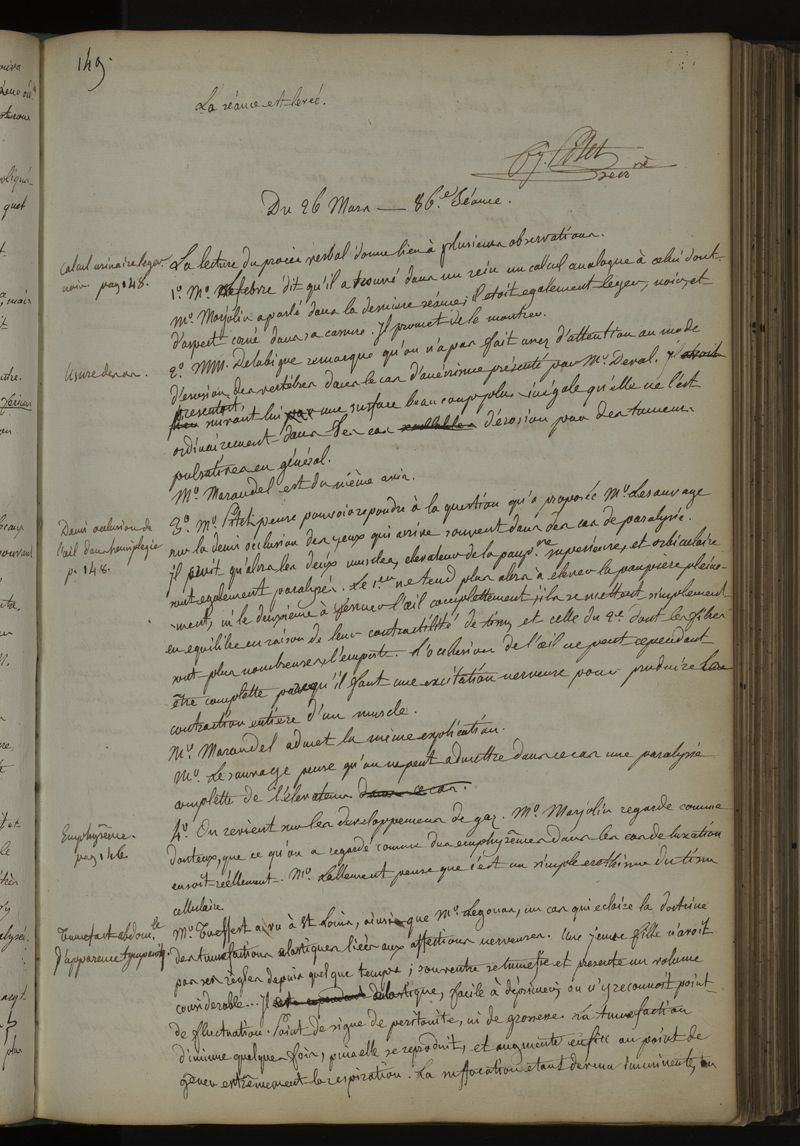 149.
La séance est levée.
Du 26 Mars — 86.e Séance.
Calcul urinaire leger.
noir pag 148.
La lecture du procès verbal donne lieu à plusieurs observations.
1.o M.r Lefebvre dit qu'il a trouvé dans un rein un calcul analogue à celui dont
M.r Marjolin a parlé dans la derniere séance; il étoit egalement leger, noir, et
d'aspect corné dans sa cassure. Il promet de le montrer.
Usure des os.
2.o MM. Delabigne remarque qu'on n'a pas fait assez d'attention au mode
d'érosion des vertèbres dans le cas d'anévrisme présenté par M.r Deval.
presentant, suivant lui une surface beaucoup plus inégale qu'elle ne l'est
ordinairement dans les cas d'érosion par des tumeurs
pulsatives en général.
M.r Marandel est du même avis.
Demi occlusion de
l'œil dans hemiplegie
p. 148.
3.o M.r pense pouvoir repondre à la question qu'a proposée M.r Lesauvage
sur la demi occlusion des yeux qui arrive souvent dans des cas de paralysie.
Il croit qu'alors les deux muscles, elevateur de la paup.re superieure, et orbiculaire
sont egalement paralysés. Le 1.er ne tend plus alors à elever la paupière pleine-
-ment, ni le deuxieme à fermer l'œil complettement; ils se mettent simplement
en equilibre en raison de leur contractilité de tissu, et celle du 2.e dont les fibres
sont plus nombreuses l'emporte. L'occlusion de l'œil ne peut cependant
être complette parcequ'il faut une excitation nerveuse pour produire la
contraction entière d'un muscle.
M.r Marandel admet la même explication.
M.r Lesauvage pense qu'on ne peut admettre dans ce cas une paralysie
complette de l'élevateur dans ce cas.
Emphysême.
pag 146
4.o On revient sur les developpemens de gaz. M.r Marjolin regarde comme
douteux, que ce qu'on a regardé comme des emphysêmes dans les cas de luxation
en soit réellement. M.r Lallement pense que c'est un simple du tissu
cellulaire.
Tumefact. abdom.le
d'apparence
M.r Tueffert a vu à St Louis, ainsi que M.r Legouas, un cas qui eclaire la doctrine
des tumefactions elastiques liées aux affections nerveuses. Une jeune fille n'avoit
pas ses règles depuis quelque temps; son ventre se tumefie et presente un volume
considerable... Il est cependant élastique, facile à déprimer; on n'y reconnoit point
de fluctuation. Point de signe de peritonite, ni de grossesse. La tumefaction
diminue quelquefois, puis elle se reproduit, et augmente enfin au point de
gêner extrêmement la respiration. La suffocation etant devenu imminente, on